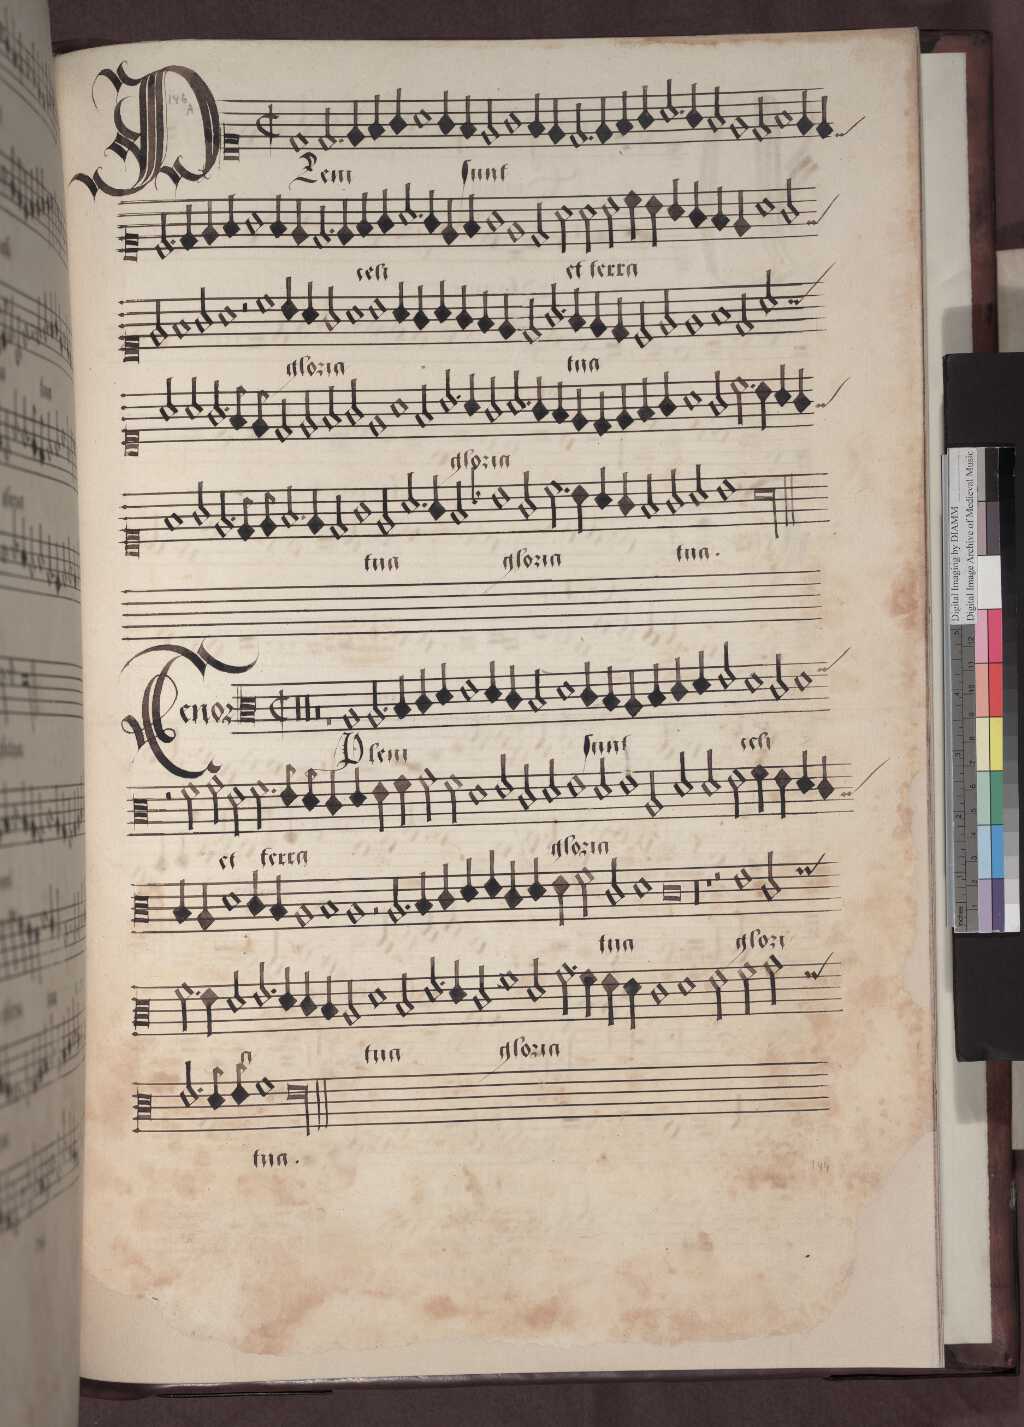 146
A
Plem sunt
celi et terra
gloria tua
gloria
tua gloria tua.
Tenor
Plem sunt celi
et terra gloria
tua glori
a tua gloria
tua.
Digital Imaging by DIAMM
Digital Image Archive of Medieval Music